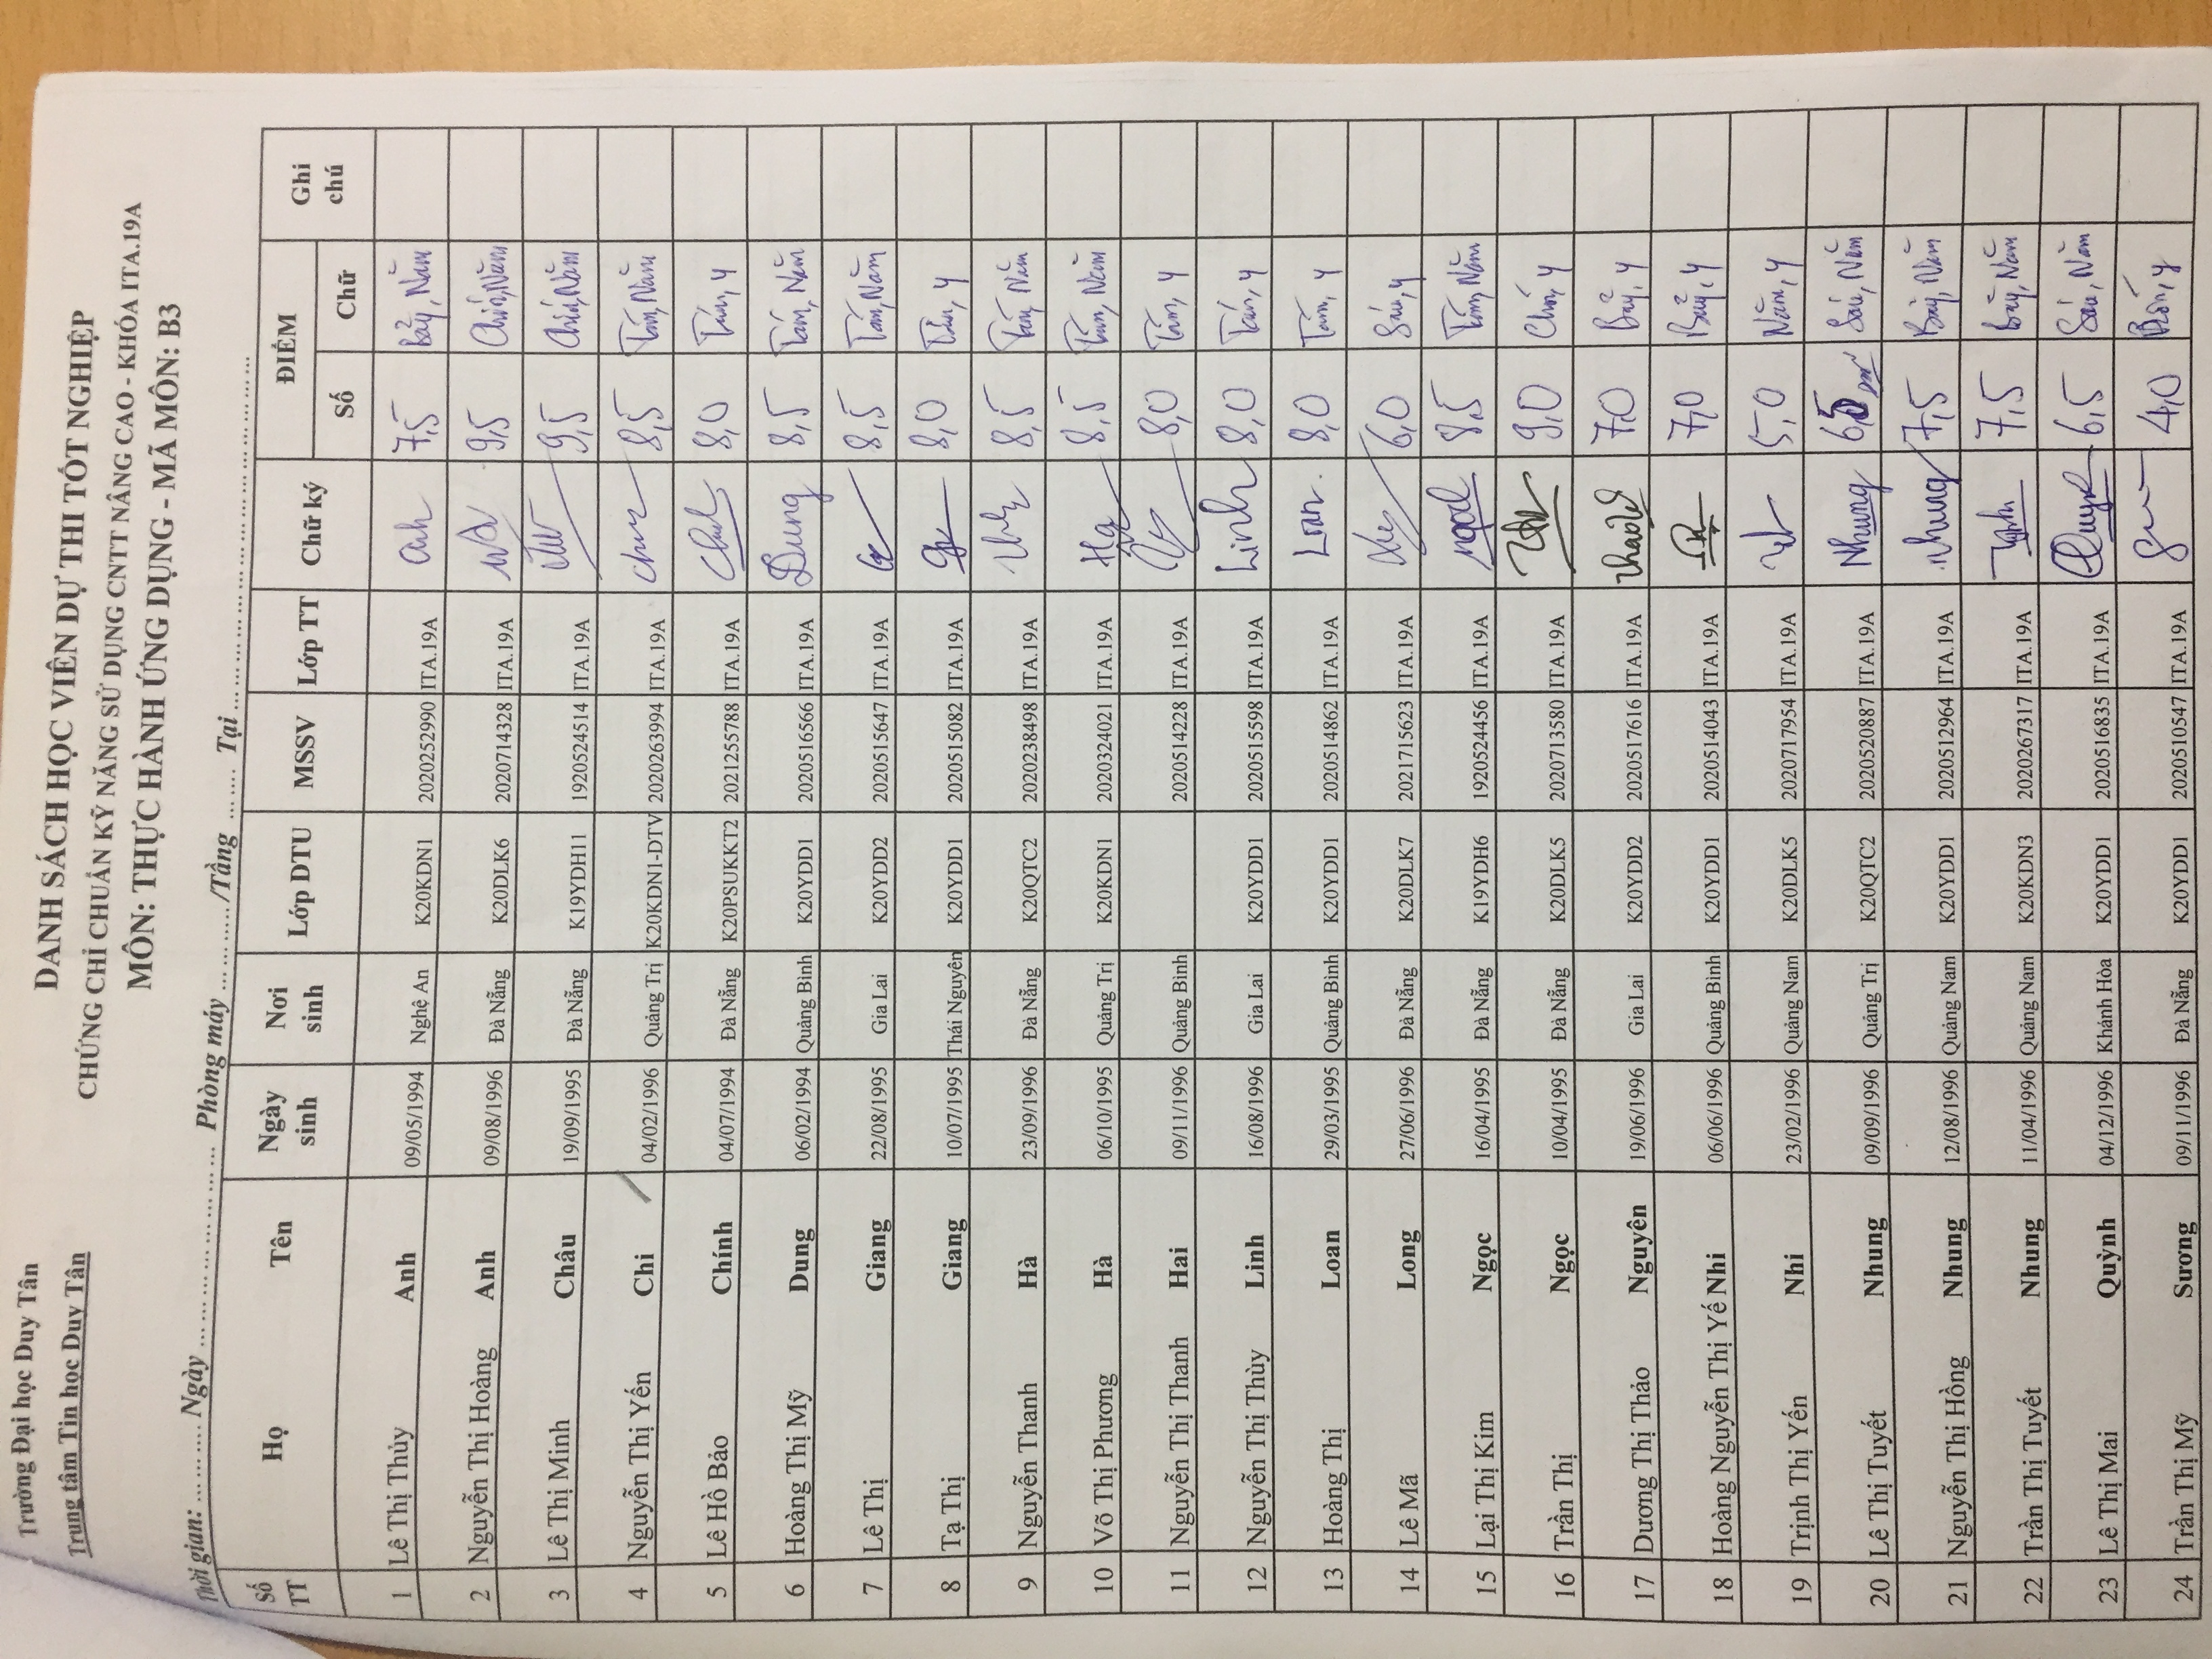 Trường Đại học Duy Tân
Trung tâm Tin học Duy Tân
DANH SÁCH HỌC VIÊN DỰ THI TỐT NGHIỆP
CHỨNG CHỈ CHUẨN KỸ NĂNG SỬ DỤNG CNTT NÂNG CAO - KHÓA ITA.19A
MÔN: THỰC HÀNH ỨNG DỤNG - MÃ MÔN: B3
Thời gian: ............ Ngày ........................ Phòng máy ........../Tầng ...... Tại ........................
Số TT Họ Tên Ngày sinh Nơi sinh Lớp DTU MSSV Lớp TT Chữ ký ĐIỂM Số Chữ Ghi chú
1 Lê Thị Thủy Anh 09/05/1994 Nghệ An K20KDN1 2020252990 ITA.19A Anh 7,5 Bảy, Năm
2 Nguyễn Thị Hoàng Anh 09/08/1996 Đà Nẵng K20DLK6 2020714328 ITA.19A 9,5 Chín, Năm
3 Lê Thị Minh Châu 19/09/1995 Đà Nẵng K19YDH11 1920524514 ITA.19A 9,5 Chín, Năm
4 Nguyễn Thị Yến Chi 04/02/1996 Quảng Trị K20KDN1-DTV 2020263994 ITA.19A 8,5 Tám, Năm
5 Lê Hồ Bảo Chính 04/07/1994 Đà Nẵng K20PSUKKT2 2021255788 ITA.19A 8,0 Tám, Y
6 Hoàng Thị Mỹ Dung 06/02/1994 Quảng Bình K20YDD1 2020516566 ITA.19A Dung 8,5 Tám, Năm
7 Lê Thị Giang 22/08/1995 Gia Lai K20YDD2 2020515647 ITA.19A 8,5 Tám, Năm
8 Tạ Thị Giang 10/07/1995 Thái Nguyên K20YDD1 2020515082 ITA.19A 8,0 Tám, Y
9 Nguyễn Thanh Hà 23/09/1996 Đà Nẵng K20QTC2 2020238498 ITA.19A 8,5 Tám, Năm
10 Võ Thị Phương Hà 06/10/1995 Quảng Trị K20KDN1 2020324021 ITA.19A Ha 8,5 Tám, Năm
11 Nguyễn Thị Thanh Hai 09/11/1996 Quảng Bình 2020514228 ITA.19A 8,0 Tám, Y
12 Nguyễn Thị Thùy Linh 16/08/1996 Gia Lai K20YDD1 2020515598 ITA.19A Linh 8,0 Tám, Y
13 Hoàng Thị Loan 29/03/1995 Quảng Bình K20YDD1 2020514862 ITA.19A Loan 8,0 Tám, Y
14 Lê Mã Long 27/06/1996 Đà Nẵng K20DLK7 2021715623 ITA.19A 6,0 Sáu, Y
15 Lại Thị Kim Ngọc 16/04/1995 Đà Nẵng K19YDH6 1920524456 ITA.19A Ngọc 8,5 Tám, Năm
16 Trần Thị Ngọc 10/04/1995 Đà Nẵng K20DLK5 2020713580 ITA.19A 9,0 Chín, Y
17 Dương Thị Thảo Nguyên 19/06/1996 Gia Lai K20YDD2 2020517616 ITA.19A 7,0 Bảy, Y
18 Hoàng Nguyễn Thị Yế Nhi 06/06/1996 Quảng Bình K20YDD1 2020514043 ITA.19A 7,0 Bảy, Y
19 Trịnh Thị Yến Nhi 23/02/1996 Quảng Nam K20DLK5 2020717954 ITA.19A 5,0 Năm, Y
20 Lê Thị Tuyết Nhung 09/09/1996 Quảng Trị K20QTC2 2020520887 ITA.19A Nhung 6,5 Sáu, Năm
21 Nguyễn Thị Hồng Nhung 12/08/1996 Quảng Nam K20YDD1 2020512964 ITA.19A Nhung 7,5 Bảy, Năm
22 Trần Thị Tuyết Nhung 11/04/1996 Quảng Nam K20KDN3 2020267317 ITA.19A 7,5 Bảy, Năm
23 Lê Thị Mai Quỳnh 04/12/1996 Khánh Hòa K20YDD1 2020516835 ITA.19A Quỳnh 6,5 Sáu, Năm
24 Trần Thị Mỹ Sương 09/11/1996 Đà Nẵng K20YDD1 2020510547 ITA.19A 4,0 Bốn, Y